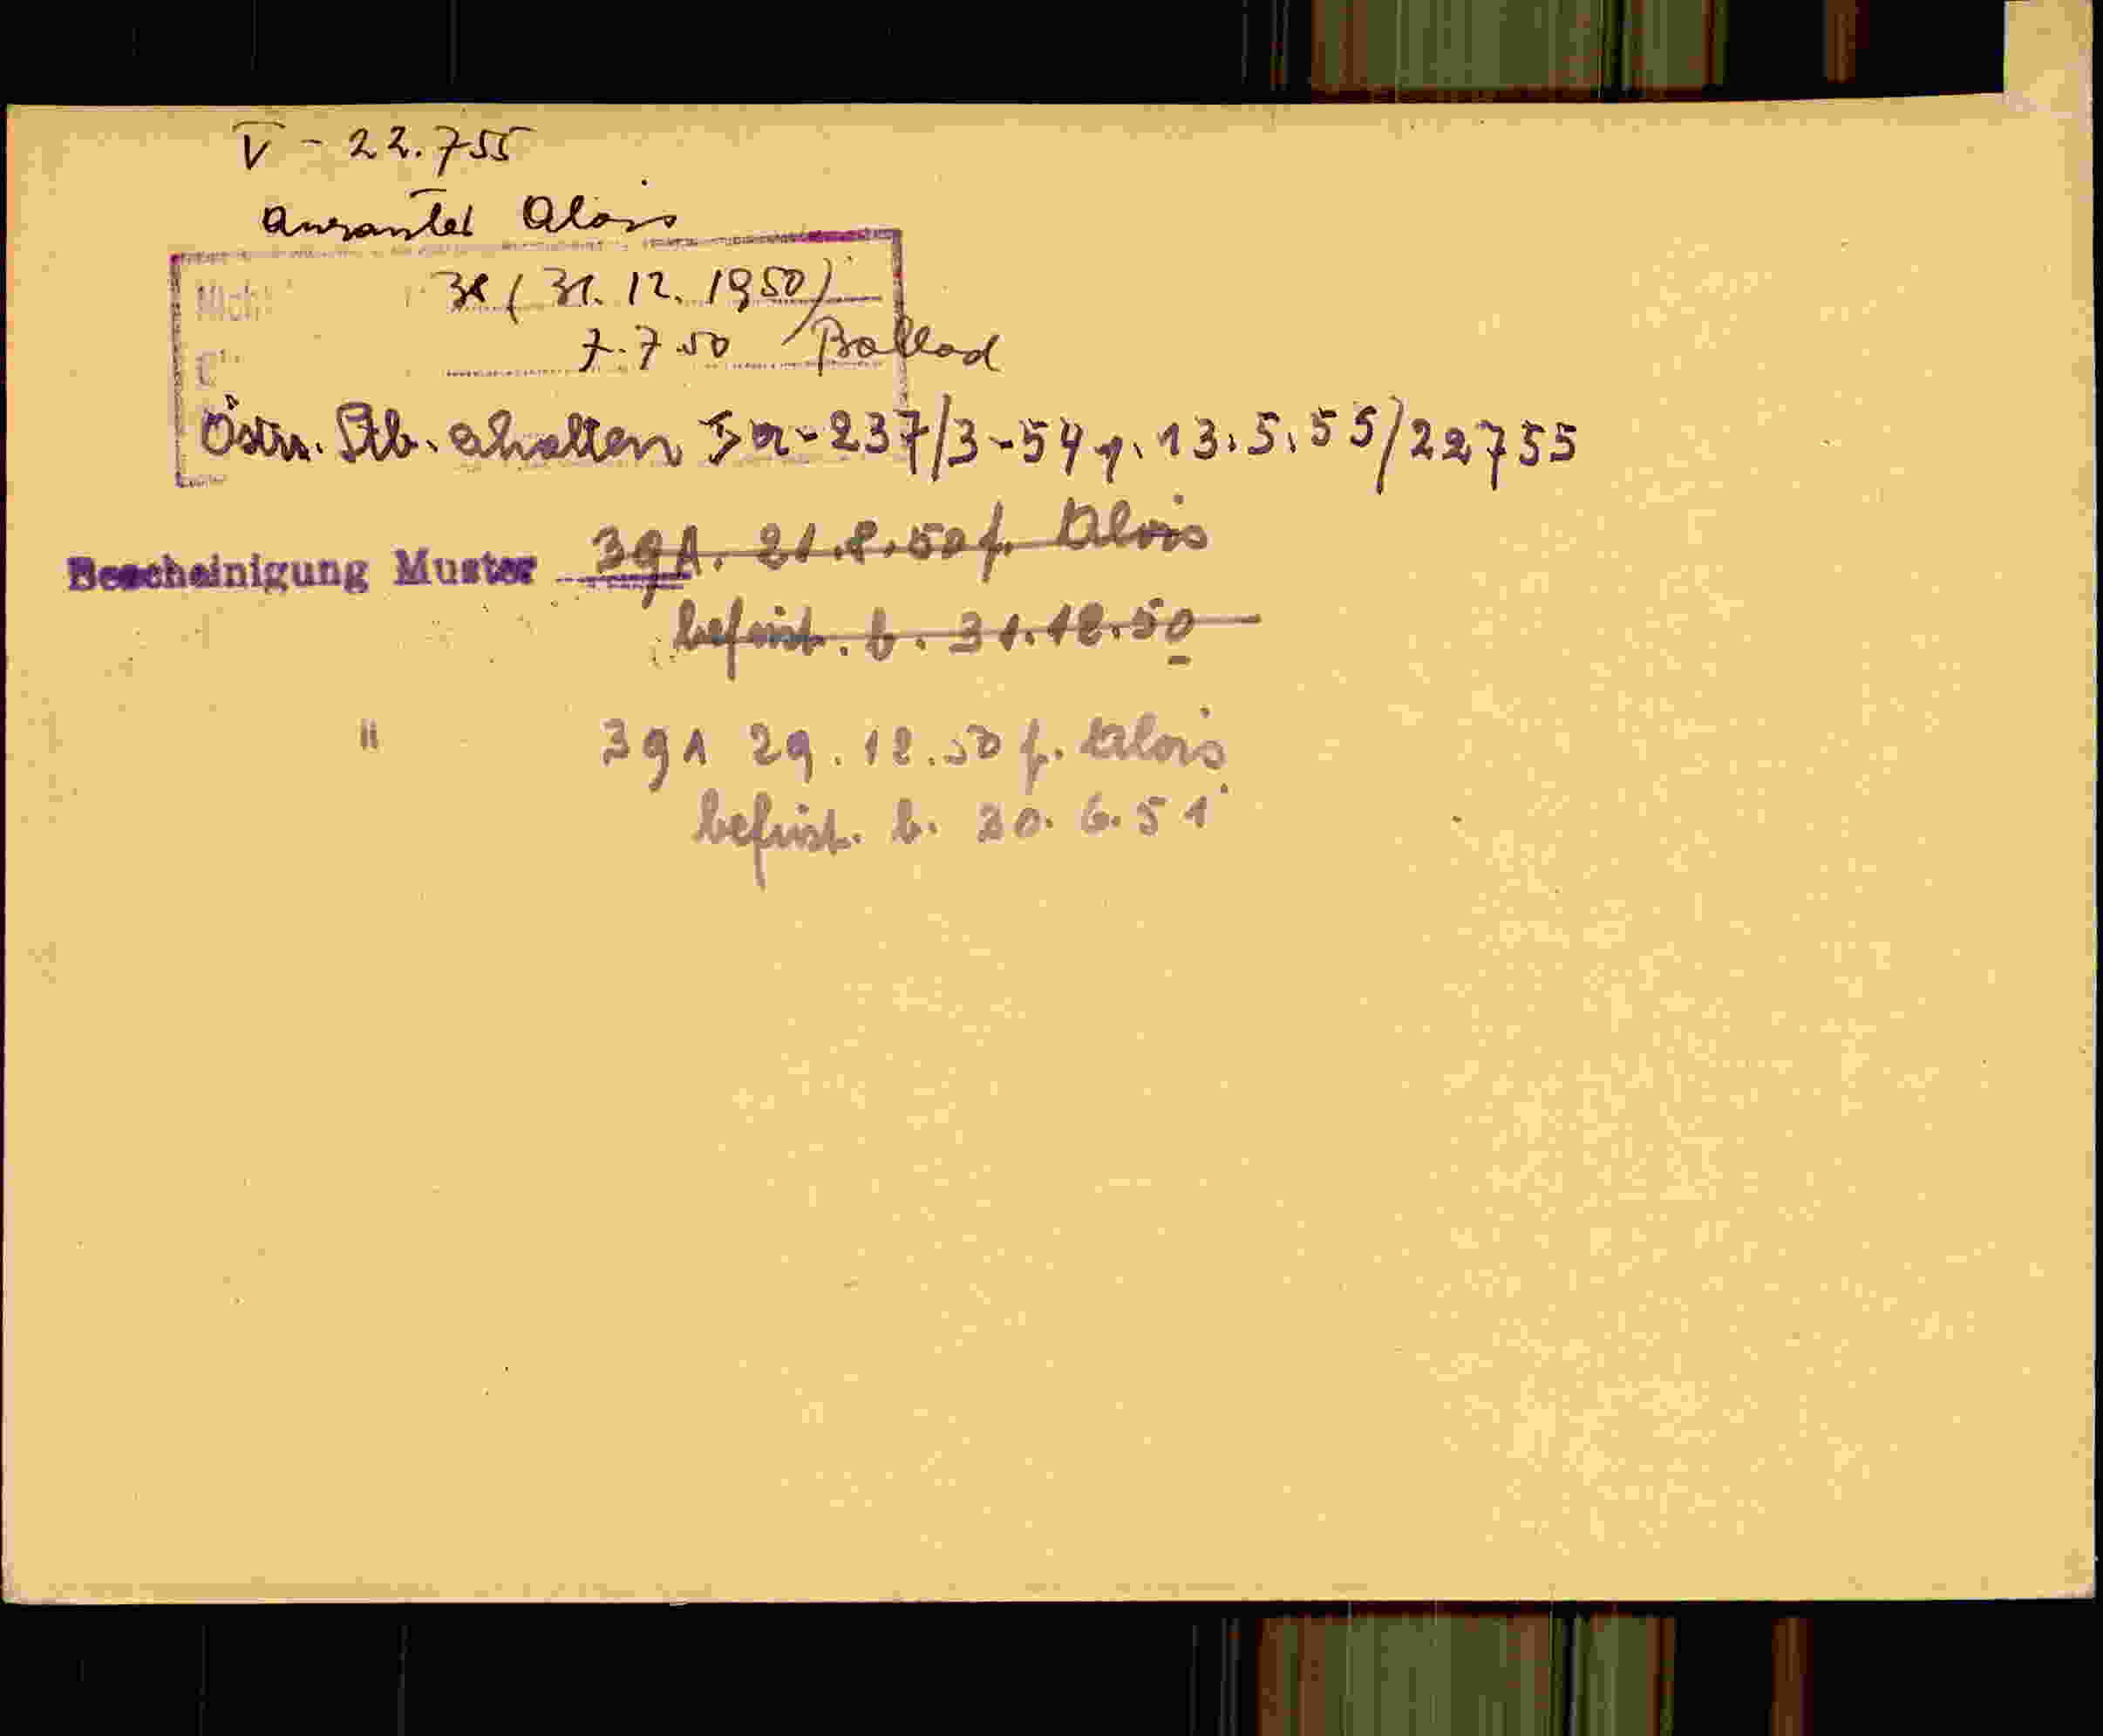 V - 22.755
Alois
38 (31. 12. 1950)
7.7.50
Östr. Stb. erhalten Ia-237/3-54 v. 13.5.55/22755
Bescheinigung Muster 39A. 21.8.50 f. Alois
befrist. b. 31.12.50
" 391 29.12.50 f. Alois
befrist. b. 30.6.51